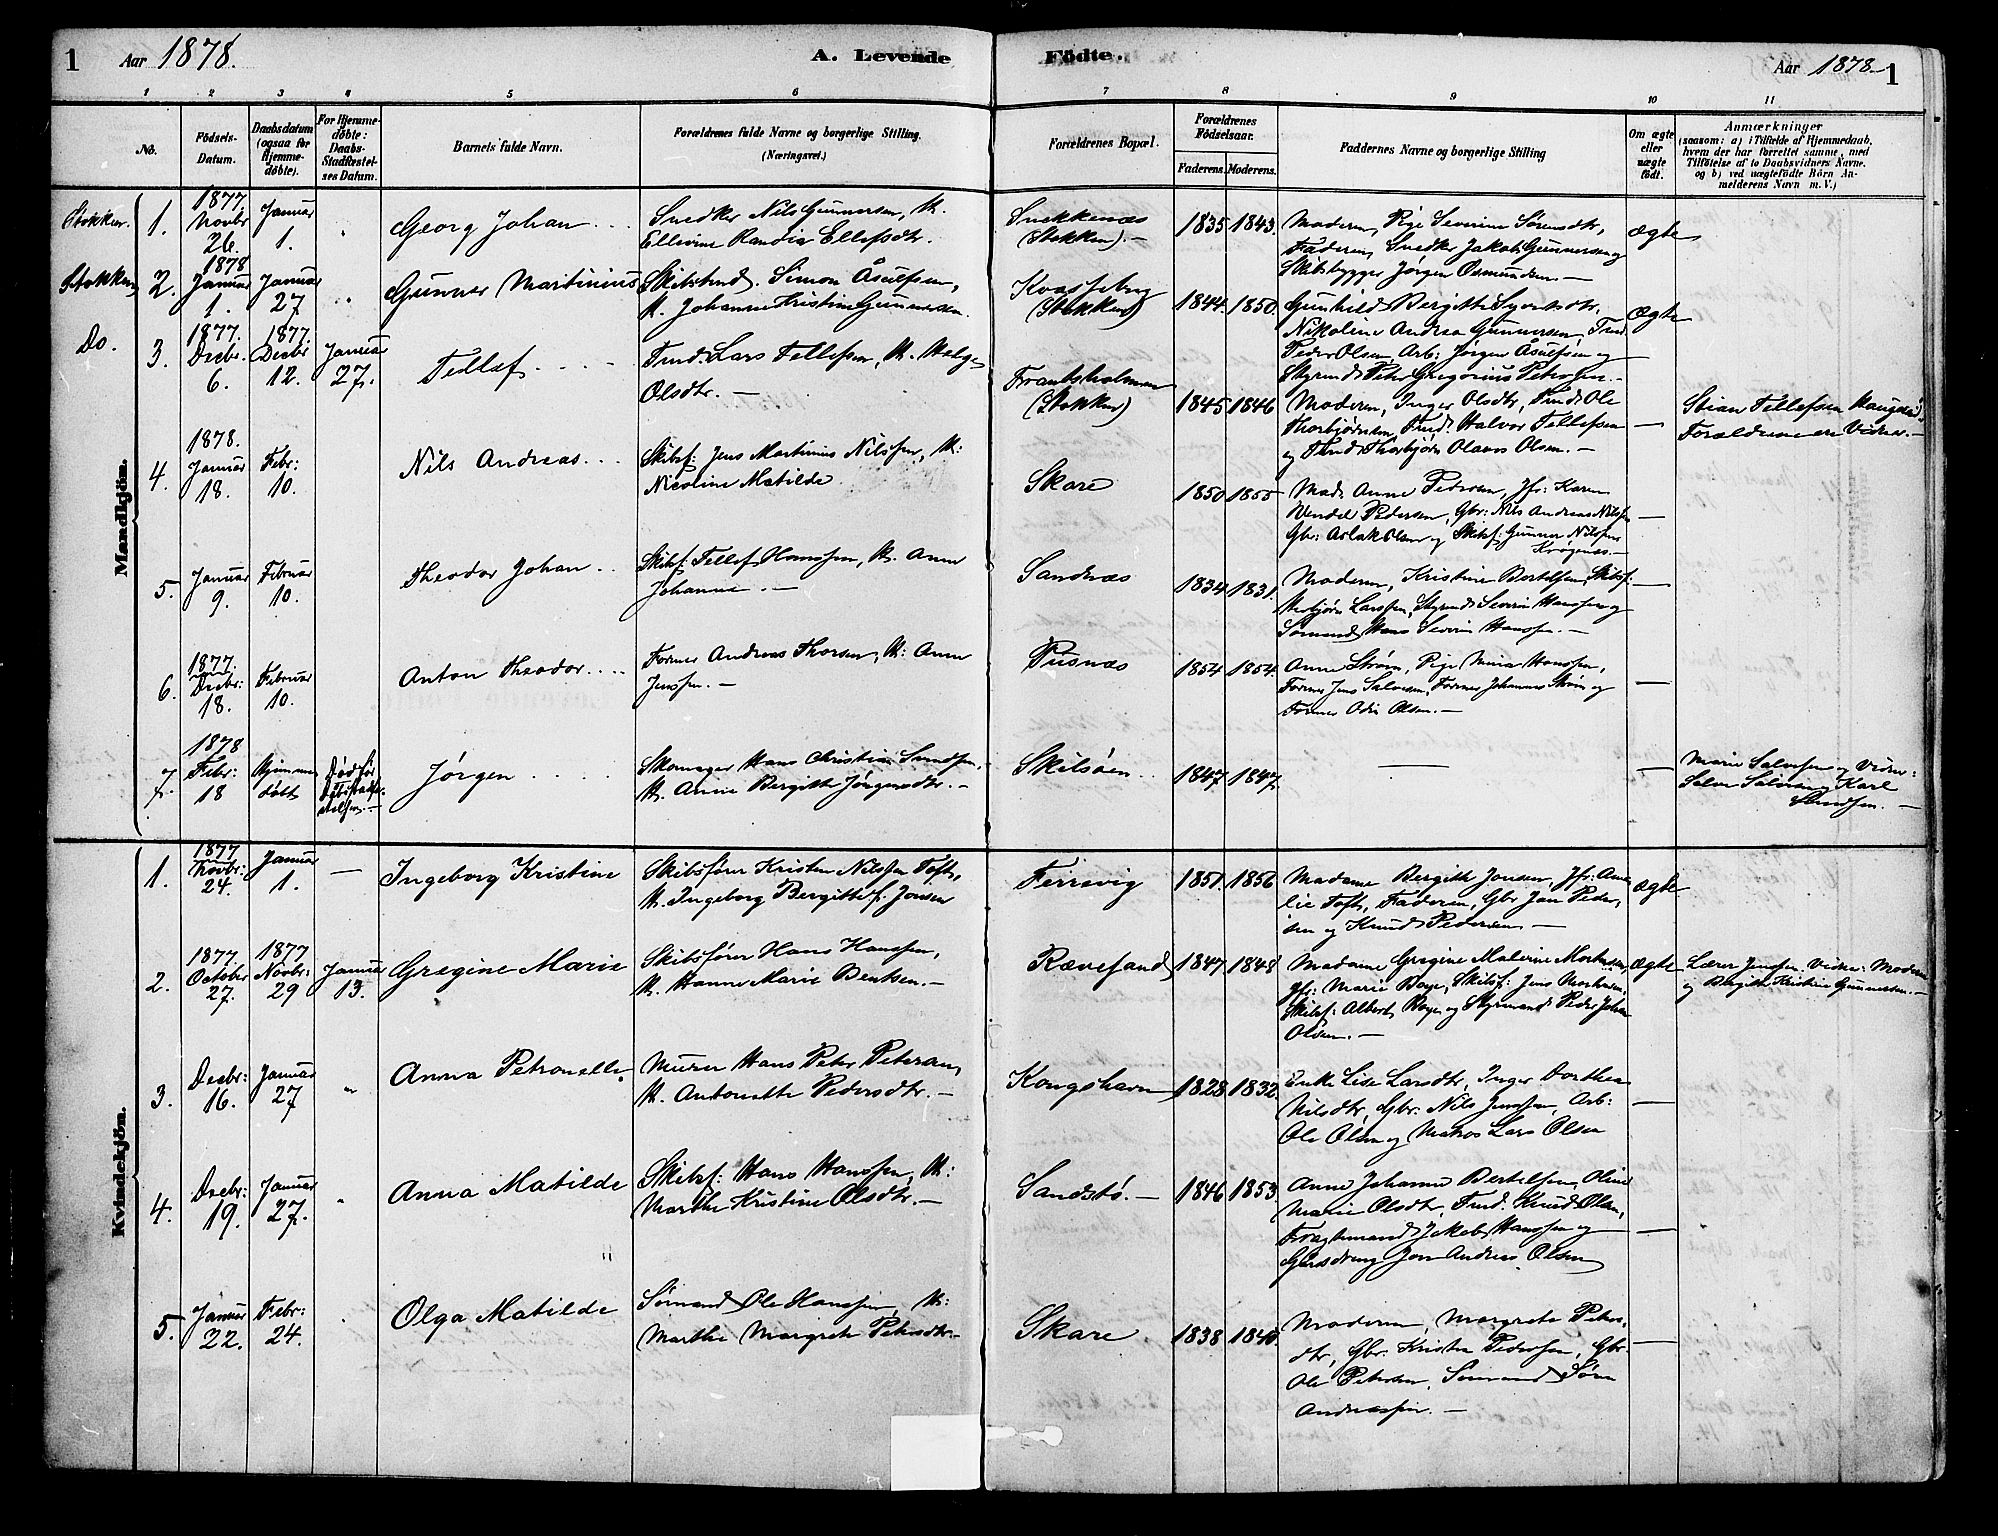 1 Aar 1878. A. Levende Födte. Aar 1878 1
1 2 3 4 5 6 7 8 9 10 11
No.
Födsels-
Datum.
Daabsdatum
(ogsaa for
Hjemme-
döbte).
For Hjemme-
döbte:
Daabs-
Stadfæstel-
ses Datum.
Barnets fulde Navn.
Forældrenes fulde Navne og borgerlige Stilling.
(Næringsvei.)
Forældrenes Bopæl.
Forældrenes
Födselsaar.
Faderens. Moderens.
Faddernes Navne og borgerlige Stilling
Om ægte
eller
uægte
födt.
Anmærkninger
(saasom: a) i Tilfælde af Hjemmedaab,
hvem der har forrettet samme, med
Tilföielse af to Daabsvidners Navne.
og b) ved uægtefödte Börn An-
melderens Navn m. V.)
Mandkjön.
Stokken. 1. 1877. Novbr 26. Januar 1. Georg Johan
Snedker Nils Gunnersen, H.
Ellevine Randia Ellefsdtr.
Snekkenæs
(Stokken).—
1835 1843.
Moderen, Pige Severine Sörensdtr,
Faderen, Snedker Jakob Gunnersen og
Skibsbygger Jörgen Osmundsen.—
Ægte
Stokken 2. 1878 Januar 1. Januar 27 Gunner Martinius
Skibstmd. Simon Åsulfsen,
H. Johanne Kristine Gunnersen.
(Stokken)
1844. 1850.
Gunhild Bergitte Syvertsdtr,
Nikoline Andrea Gunnersen, Tmd
Peder Olsen, Arb: Jörgen Åsulfsen og
Styrmd Peter Gregorius Petersen.—
Ægte
Do. 3. 1877. Decbr. 6. 1877. Decbr 12. Januar 27. Tellef
Tmd. Lars Tellefsen, H. Helge
Olsdtr.—
Frantsholmen
(Stokken)
1845 1846
Moderen, Inger Olsdtr, Tmd Ole
Thorbjörnsen, Tmd. Halvor Tellefsen
og Tmd Thorbjörn Olaus Olsen.—
Stian Tellefsen
Forældrene ere Vidner.—
4. 1878. Januar 18. Febr: 10. Nils Andreas
Skibsf: Jens Martinius Nilssen, H:
Nicoline Matilde
Skare
1850 1855
Mad: Anne Pedersen, Jfr: Karen
Wendel Pedersen, Gbr: Nils Andreas Nilssen
Gbr: Aslak Olsen og Skibsf: Gunner Nilssen
Krögenæs.—
5. Januar 9. Februar 10. Theodor Johan
Skibsf: Tellef Hanssen, H. Anne
Johanne.—
Sandnæs
1834 1831.
Moderen, Kristine Bertelsen, Skibsf:
Larssen, Styrmd Severin Hanssen og
Sömand Hans Severin Hanssen.—
6. 1877. Decbr: 18. Februar 10. Anton Theodor
Former Andreas Thorsen, H: Anne
Jenssen.—
Pusnæs
1854 1854.
Anne Ström, Pige Mina Hanssen,
Former Jens Salvesen, Former Johannes Ström og
Former Odin Olsen.—
7. 1878 Febr: 18 Hjemme döbt Död för Jörgen
Skomager Hans Christian Svendsen,
H. Anne Bergitte Jörgensdtr.—
Skilsöen
1847 1847.
Marie Salvesen og Vidner:
Salve Salvesen og Karl
Svendsen.—
Kvindekjön.
1. 1877 Novbr: 24. Januar 1. — Ingeborg Kristine
Skibsförer Kristen Nilssen Toft,
H. Ingeborg Bergitte f: Jonsen
Færvig
1851. 1856
Madame Bergitte Jonsen, Jfr: Ama-
lie Toft, Faderen, Gbr Jan Peder-
sen og Knud Pedersen—
Ægte
2. 1877. October 27. 1877 Novbr: 29 Januar 13. Gregine Marie
Skibsförer Hans Hanssen,
H. Hanne Marie Bentsen.—
Rævesand
1847 1848
Madame Gregine Malerine
Jfr: Marie Boye, Skibsf: Jens
Skibsf: Albert Boye og Styrmand Peder Johan
Olsen.—
Ægte
Lærer Jenssen. Vidner: Moderen
og Bergitte Kristine Gunnersen.—
3. Decbr: 16. Januar 27 Anna Petronelle
Murer Hans Peter Petersen,
H. Antonette Pedersdtr.—
Kongshavn
1828 1832.
Enke Lise Larsdtr, Inger Dorthea
Nilsdtr, Gbr: Nils Jenssen, Arb:
Ole Olsen og Matros Lars Olsen
4. Decbr: 19. Januar 27. Anna Matilde
Skibsf: Hans Hanssen, H:
Marthe Kristine Olsdtr.—
Sandstö.—
1846 1853
Anne Johanne Bertelsen, Oline
Marie Olsdtr, Tmd. Knud Olsen,
Fragtemand Jakob Hanssen og
Gaardsdreng Jon Andreas Olsen
5. Januar 22. Febr: 24. Olga Matilde
Sömand Ole Hanssen, H:
Marthe Margrete Petersdtr—
Skare
1838 1840.
Moderen, Margrete Peters-
dtr, Gbr: Kristen Pedersen, Gbr:
Ole Petersen, Sömand Sören
Andreassen.—